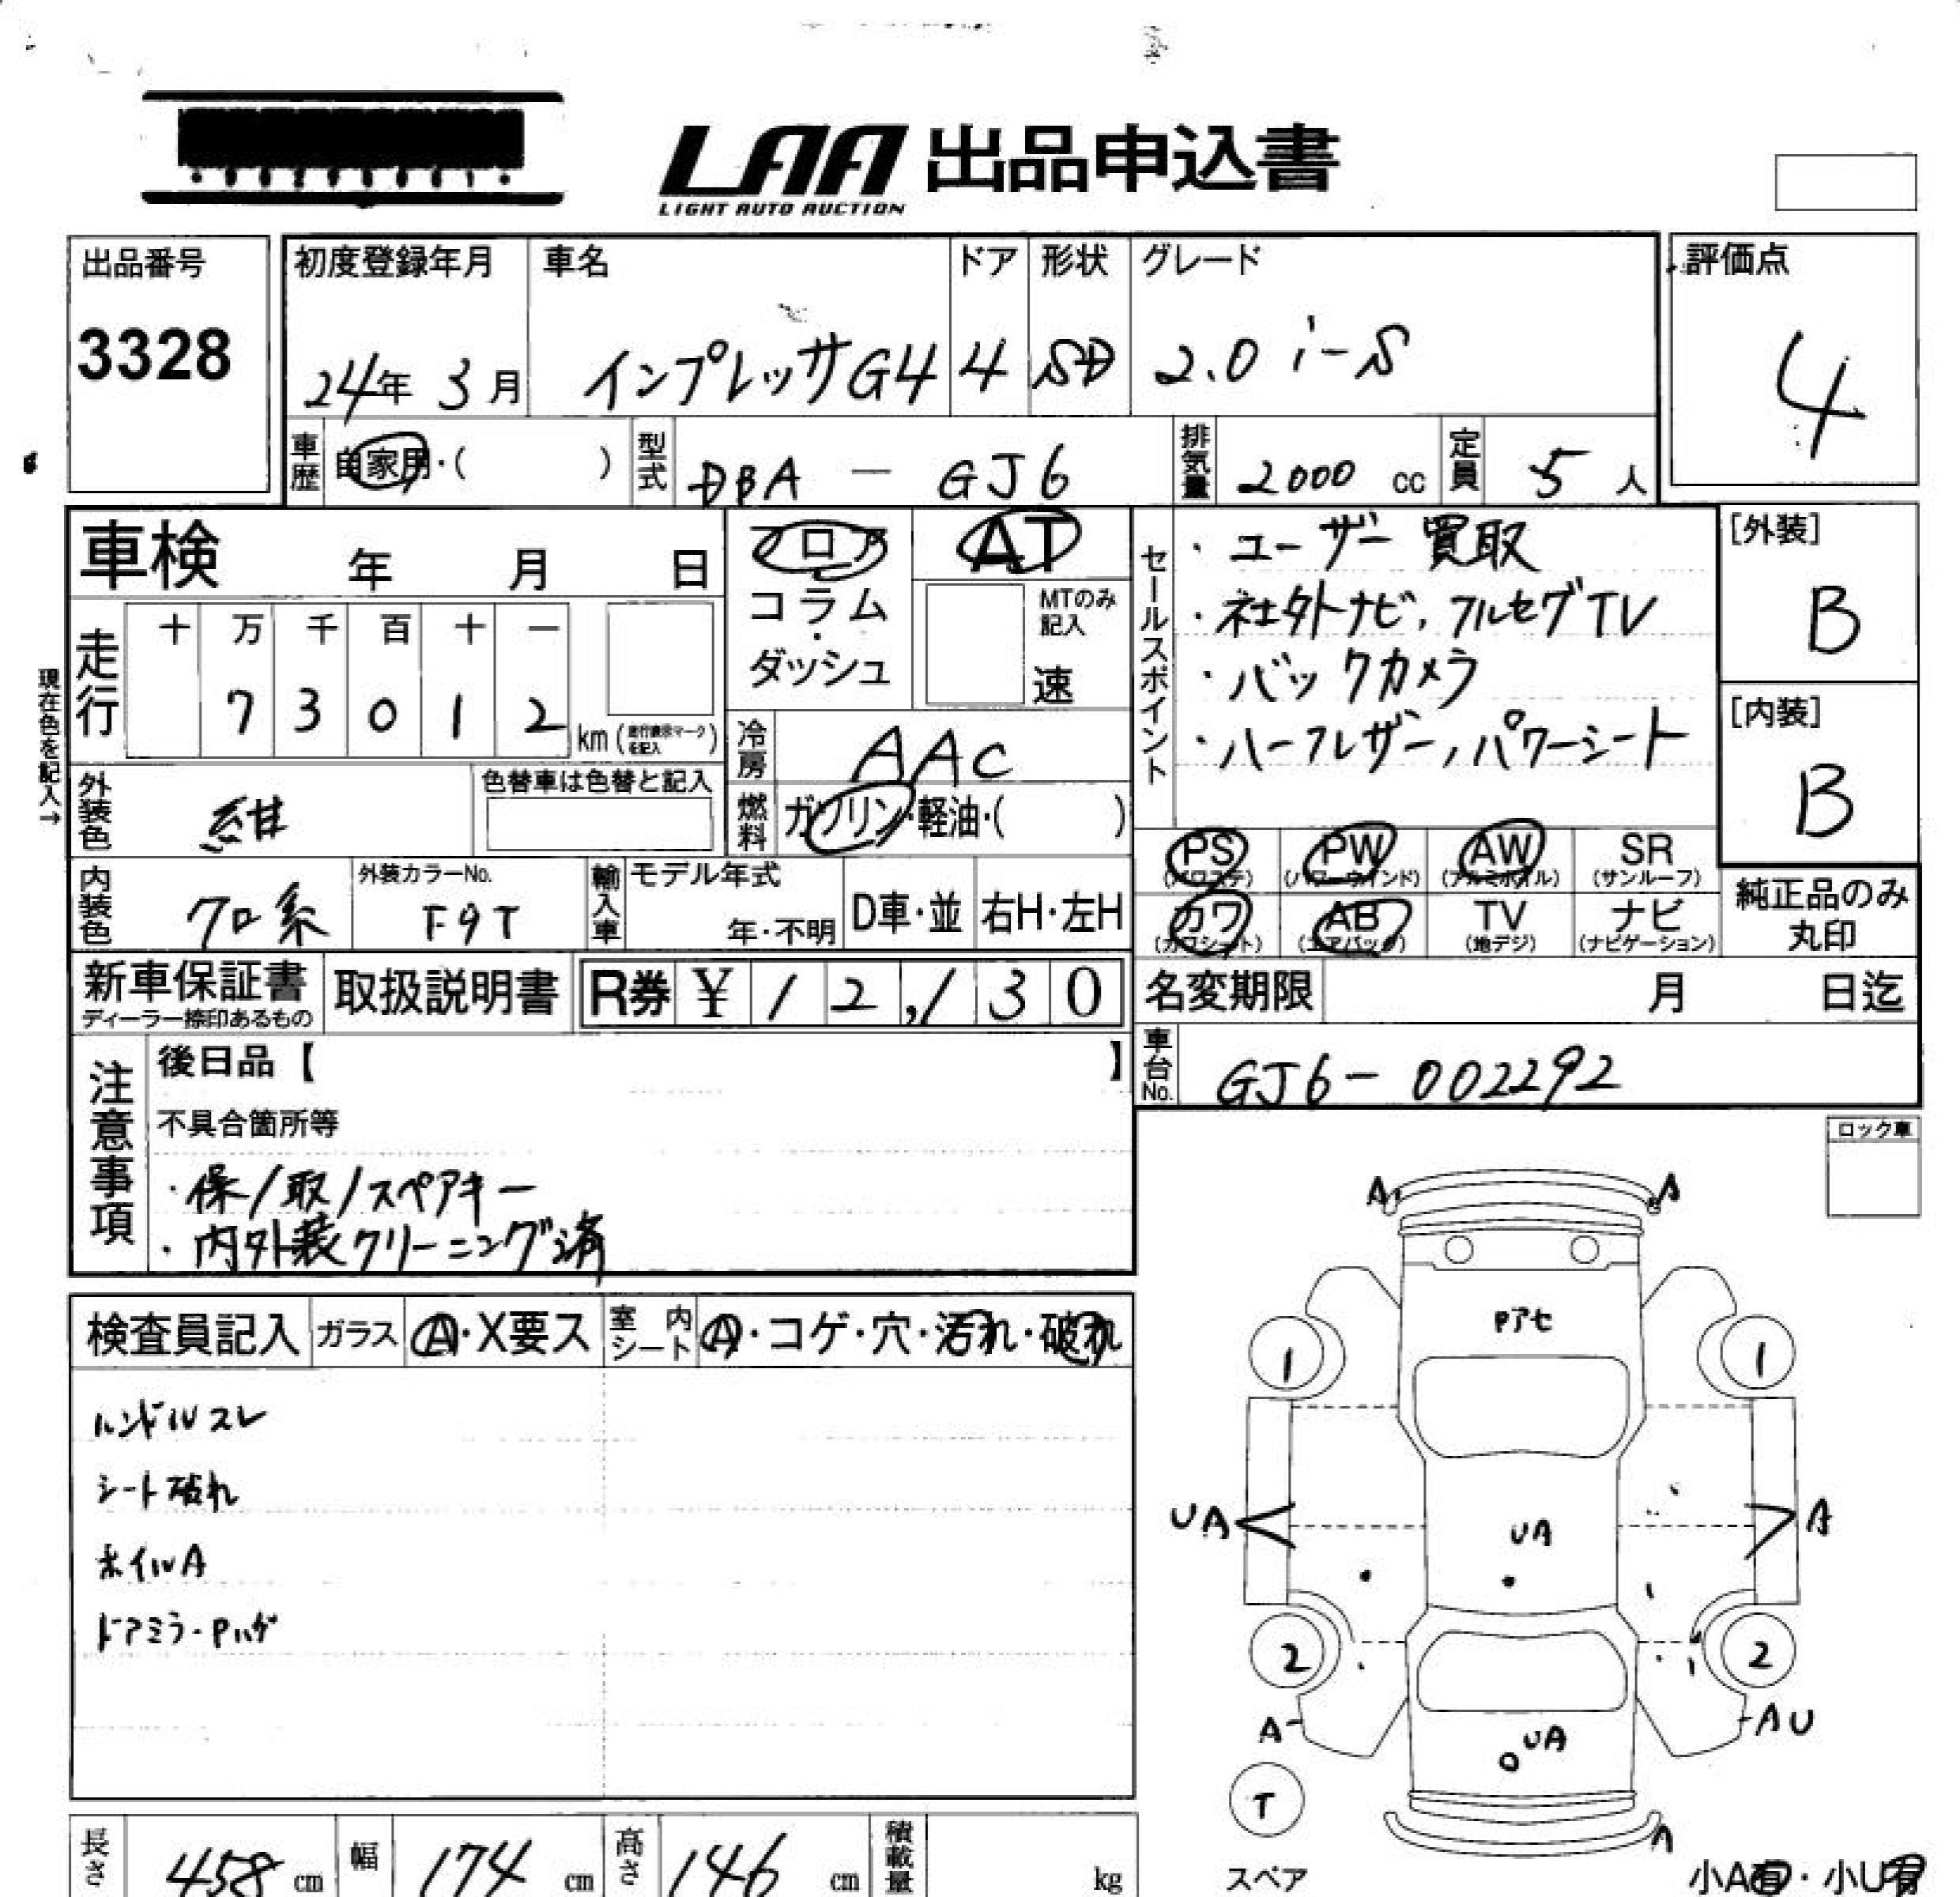 LAA 出品申込書
LIGHT AUTO AUCTION
出品番号
3328
初度登録年月
24年 3月
車名
インプレッサG4
ドア
4
形状
SD
グレード
2.0 i-S
評価点
4
車歴 自家用・( )
型式 DBA - GJ6
排気量 2000 cc
定員 5 人
車検 年 月 日
フロア
コラム
・
ダッシュ
AT
MTのみ
記入
速
セールスポイント
・ユーザー買取
・社外ナビ、フルセグTV
・バックカメラ
・ハーフレザー、パワーシート
[外装]
B
[内装]
B
現在色を記入→
走行
十 万 千 百 十 一
7 3 0 1 2 km (走行表示マークを記入)
冷房 AAC
燃料 ガソリン・軽油・( )
外装色 紺
色替車は色替と記入
PS (パワステ)
PW (パワーウインド)
AW (アルミホイル)
SR (サンルーフ)
カワ (カワシート)
AB (エアバック)
TV (地デジ)
ナビ (ナビゲーション)
純正品のみ
丸印
内装色 クロ系
外装カラーNo.
F9T
輸入車
モデル年式
年・不明
D車・並
右H・左H
新車保証書
ディーラー捺印あるもの
取扱説明書
R券 ¥ 12,130
名変期限 月 日迄
車台No. GJ6-002292
注意事項
後日品【 】
不具合箇所等
・保/取/スペアキー
・内外装クリーニング済
ロック車
検査員記入
ガラス A・X要ス
室内シート A・コゲ・穴・汚れ・破れ
ハンドルスレ
シート破れ
ホイルA
ドアミラ・Pハゲ
A A
Pアセ
1 1
UA UA A
2 2
A AU
UA
T
A
スペア
小A有・小U有
長さ 458 cm
幅 174 cm
高さ 146 cm
積載量 kg